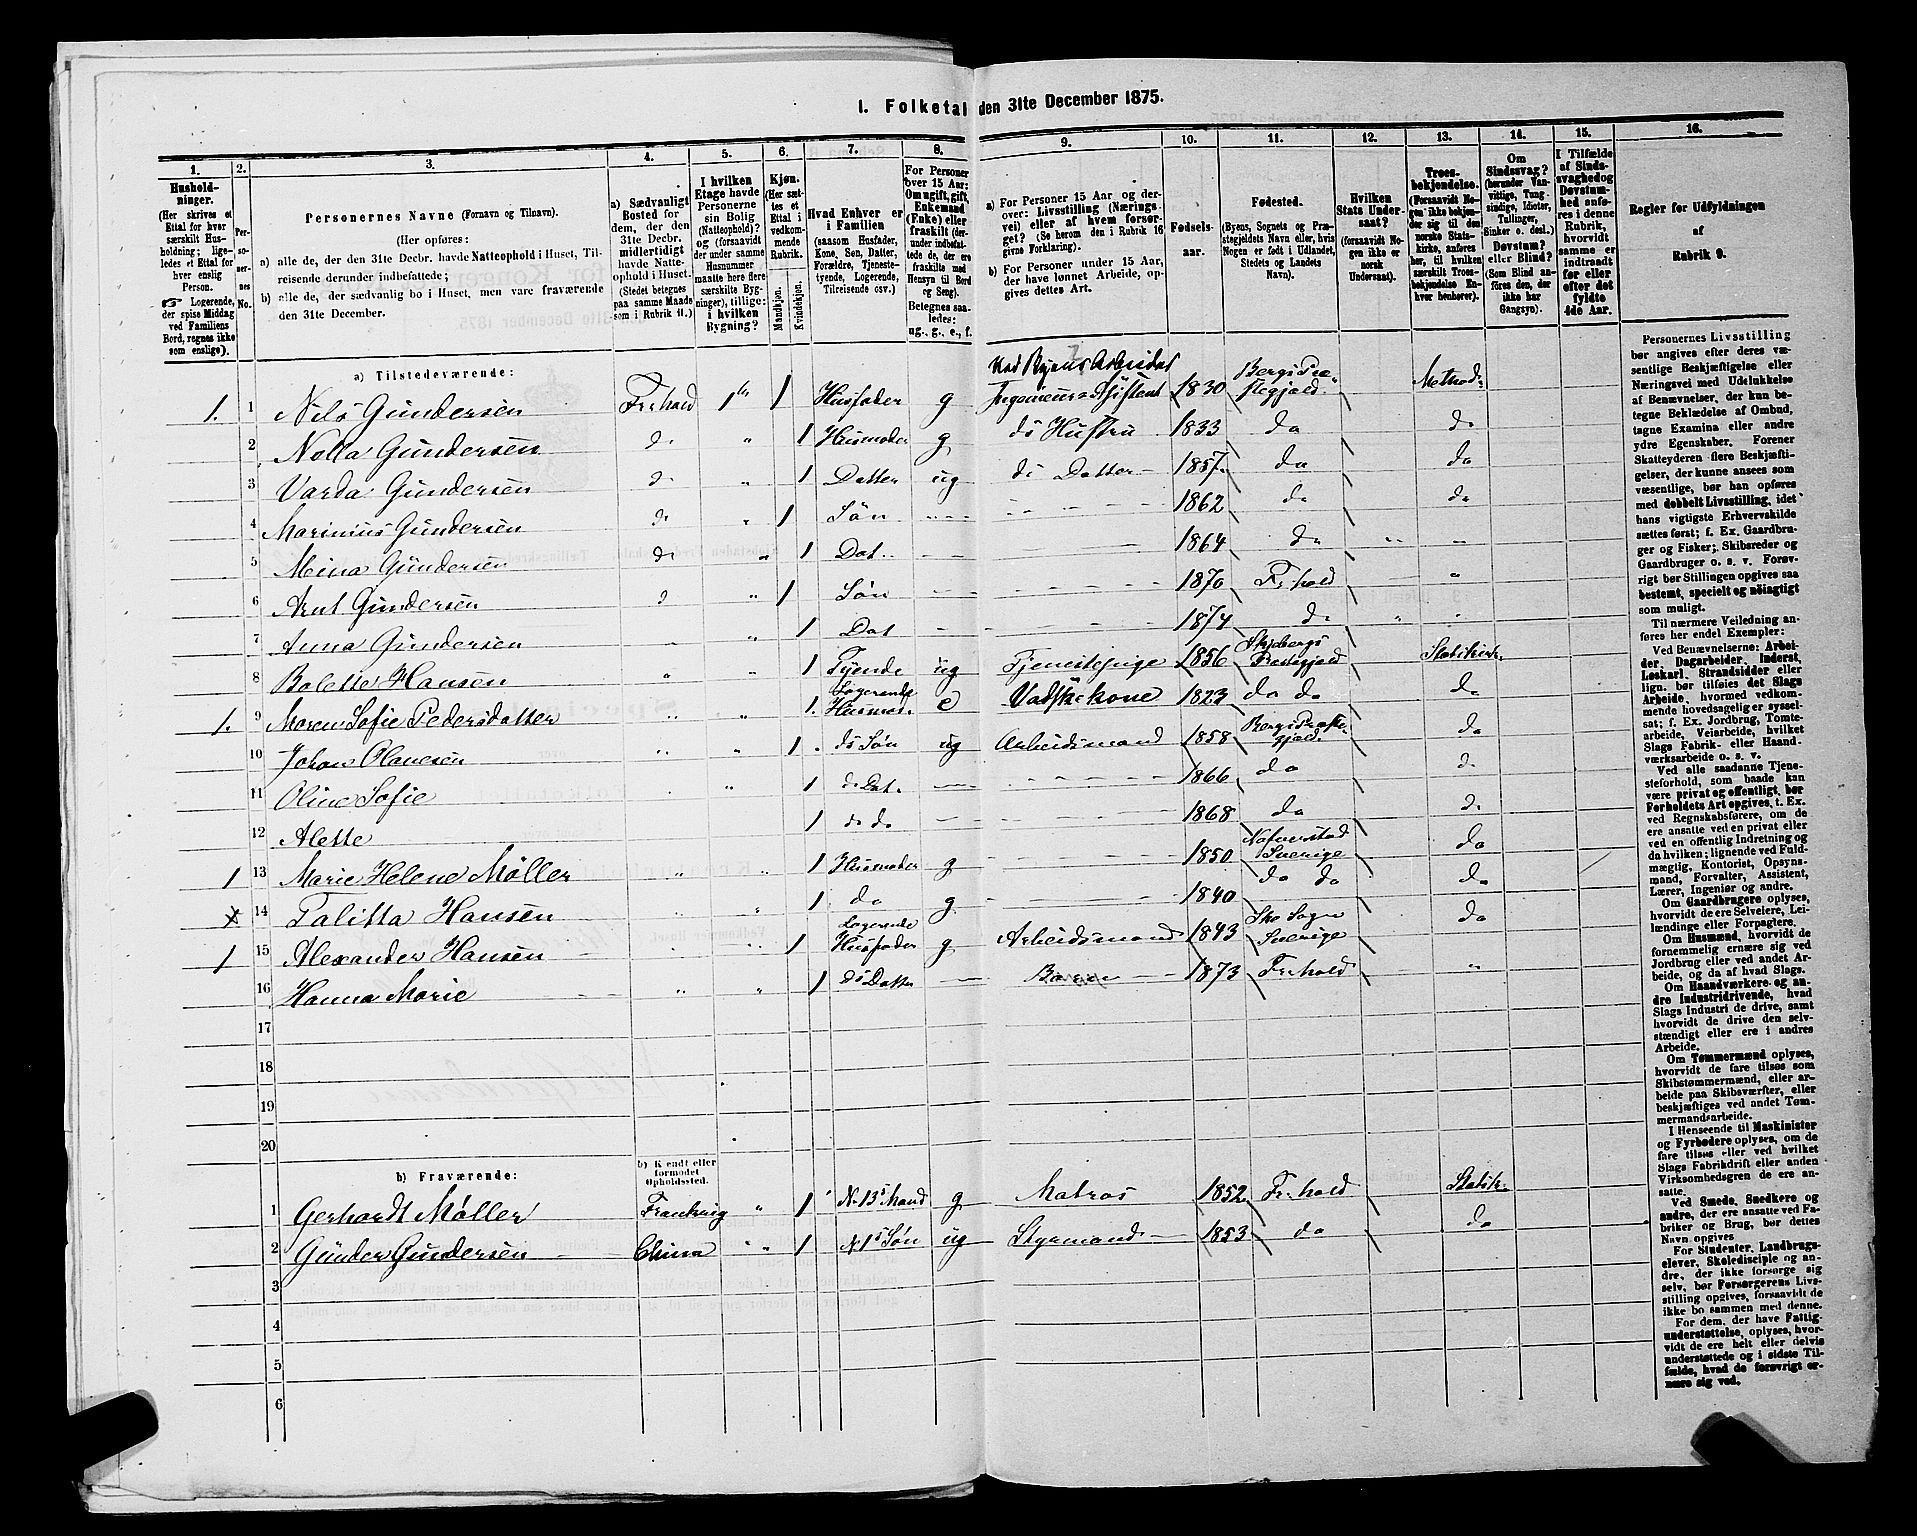 1. Folketal den 31te December 1875.
1. 2. 3. 4. 5. 6. 7. 8. 9. 10. 11. 12. 13. 14. 15. 16.
Husholdninger. (Her skrives et Ettal for hver særskilt Husholdning; ligeledes et Ettal for hver enslig Person.
Logerende, der spise Middag ved Familiens Bord, regnes ikke som enslige).
Personernes No.
Personernes Navne (Fornavn og Tilnavn).
(Her opføres:
a) alle de, der den 31te Decbr. havde Natteophold i Huset, Tilreisende derunder indbefattede;
b) alle de, der sædvanlig bo i Huset, men vare fraværende den 31te December.
a) Sædvanligt Bosted for dem, der den 31te Decbr. midlertidigt havde Natteophold i Huset. (Stedet betegnes paa samme Maade som i Rubrik 11.)
I hvilken Etage havde Personerne sin Bolig (Natteophold)? og (forsaavidt der under samme Husnummer maatte være flere særskilte Bygninger), tillige: i hvilken Bygning?
Kjøn. (Her sættes et Ettal i vedkommende Rubrik.
Mandkjøn. Kvindekjøn.
Hvad Enhver er i Familien (saasom Husfader, Kone, Søn, Datter, Forældre, Tjenestetyende, Logerende, Tilreisende osv.)
For Personer over 15 Aar: Om ugift, gift, Enkemand (Enke) eller fraskilt (derunder indbefattede de, der ere fraskilte med Hensyn til Bord og Seng). Betegnes saaledes: ug., g., e., f.
a) For Personer 15 Aar og derover: Livsstilling (Næringsvei) eller af hvem forsørget? (Se herom den i Rubrik 16 givne Forklaring).
b) For Personer under 15 Aar, der have lønnet Arbeide, opgives dettes Art.
Fødselsaar.
Fødested. (Byens, Sognets og Præstegjeldets Navn eller, hvis Nogen er født i Udlandet, Stedets og Landets Navn).
Hvilken Stats Undersaat? (forsaavidt Nogen ikke er norsk Undersaat).
Troesbekjendelse. (Forsaavidt Nogen ikke bekjender sig til den norske Statskirke, anføres her, til hvilken særskilt Troesbekjendelse Enhver henhører).
Om Sindssvag? (herunder Vanvittige, Tungsindige, Idioter, Tullinger, Sinker o. desl.) Døvstum? eller Blind? (Som Blind anføres den, der ikke har Gangsyn).
I Tilfælde af Sindssvaghed og Døvstumhed anføres i denne Rubrik, hvorvidt samme er indtraadt før eller efter det fyldte 4de Aar.
Regler for Udfyldningen af Rubrik 9.
a) Tilstedeværende:
Ved Byens Arbeider
1. 1 Nils Gundersen Fr.hald 1ste 1 Husfader g Ingenieur-Assistent 1830 Bergs Præstegjæld. Method.
2 Nella Gundersen do " 1 Husmoder g ds Hustru 1833 do do
3 Varda Gundersen do " 1 Datter ug ds Datter 1857 do do
4 Marinius Gundersen do " 1 Søn 1862 do do
5 Mina Gundersen do " 1 Dat. 1864 do " "
6 Arnt Gundersen do " 1 Søn 1870 Fr.hald "
7 Anna Gundersen " 1 Dat 1874 do " "
8 Bolette Hansen " " 1 Tyende ug Tjenestepige 1856 Skjebergs Præstegjæld Statskirk.
1. 9 Maren Sofie Pedersdatter " " 1. Logerende Husmor. e Vadskekone 1823 do do do
10 Johan Olavesen " " 1 ds Søn ug Arbeidsmand 1858 Bergs Præstegjæld. do
11 Oline Sofie " " 1 ds Dat. 1866 do do
12 Alette 1 ds do 1868 do do
1 13 Marie Helene Møller " " 1 Husmoder g 1850 Nafverstad Sverige do
14 Talitta Hansen " 1 do g 1840 do do do
1 15 Alexander Hansen " " 1 Logerende Husfader g Arbeidsmand 1843 Ske Sogn Sverige do
16 Hanna Marie " " 1 ds Datter 1873 Fr.hald "
17
18
19
20
b) Fraværende:
b) Kjendt eller formodet Opholdssted.
1 Gerhardt Møller Frankrig " 1 No 13s Mand g Matros 1852 Fr.hald Statsk.
2 Günder Gundersen China " " 1 No 1s Søn ug Styrmand 1853 do do
3
4
5
6
Personernes Livsstilling bør angives efter deres væsentlige Beskjæftigelse eller Næringsvei med Udelukkelse af Benævnelser, der kun betegne Beklædelse af Ombud, tagne Examina eller andre ydre Egenskaber. Forener Skatteyderen flere Beskjæftigelser, der kunne ansees som væsentlige, bør han opføres med dobbelt Livsstilling, idet hans vigtigste Erhvervskilde sættes først; f. Ex. Gaardbruger og Fisker; Skibsreder og Gaardbruger o. s. v. Forøvrigt bør Stillingen opgives saa bestemt, specielt og nöiagtigt som muligt.
Til nærmere Veiledning anføres her endel Exempler:
Ved Benævnelserne: Arbeider, Dagarbeider, Inderst, Løskarl, Strandsidder eller lign. bør tilføies det Slags Arbeide, hvormed vedkommende hovedsagelig er sysselsat; f. Ex. Jordbrug, Tomtearbeide, Veiarbeide, hvilket Slags Fabrik- eller Haandværksarbeide o. s. v.
Ved alle saadanne Tjenesteforhold, som baade kan være privat og offentligt, bør Forholdets Art opgives, t. Ex. ved Regnskabsførere, om de ere ansatte ved en privat eller ved en offentlig Indretning og da hvilken; lignende ved Fuldmægtig, Kontorist, Opsynsmand, Forvalter, Assistent, Lærer, Ingeniør og andre.
Om Gaardbrugere oplyses, hvorvidt de ere Selveiere, Leilændinge eller Forpagtere.
Om Husmænd, hvorvidt de fornemmelig ernære sig ved Jordbrug eller ved andet Arbeide, og da af hvad Slags.
Om Haandværkere og andre Industridrivende, hvad Slags Industri de drive, samt hvorvidt de drive den selvstændigt eller ere i andres Arbeide.
Om Tømmermænd oplyses, hvorvidt de fare tilsøs som Skibstømmermænd, eller arbeide paa Skibsværfter, eller beskjæftiges ved andet Tømmermandsarbeide.
I Henseende til Maskinister og Fyrbødere oplyses, om de fare tilsøs eller ved hvilket Slags Fabrikdrift eller anden Virksomhedsgren de ere ansatte.
Ved Smede, Snedkere og andre, der ere ansatte ved Fabriker og Brug, bør dettes Navn opgives
For Studenter, Landbrugselever, Skoledisciple og andre, der ikke forsørge sig selv, bør Forsørgerens Livsstilling opgives, forsaavidt de ikke bo sammen med denne.
For dem, der have Fattigunderstøttelse, oplyses, hvorvidt de ere helt eller delvis understøttede og i sidste Tilfælde, hvad de forøvrigt ernære sig ved.